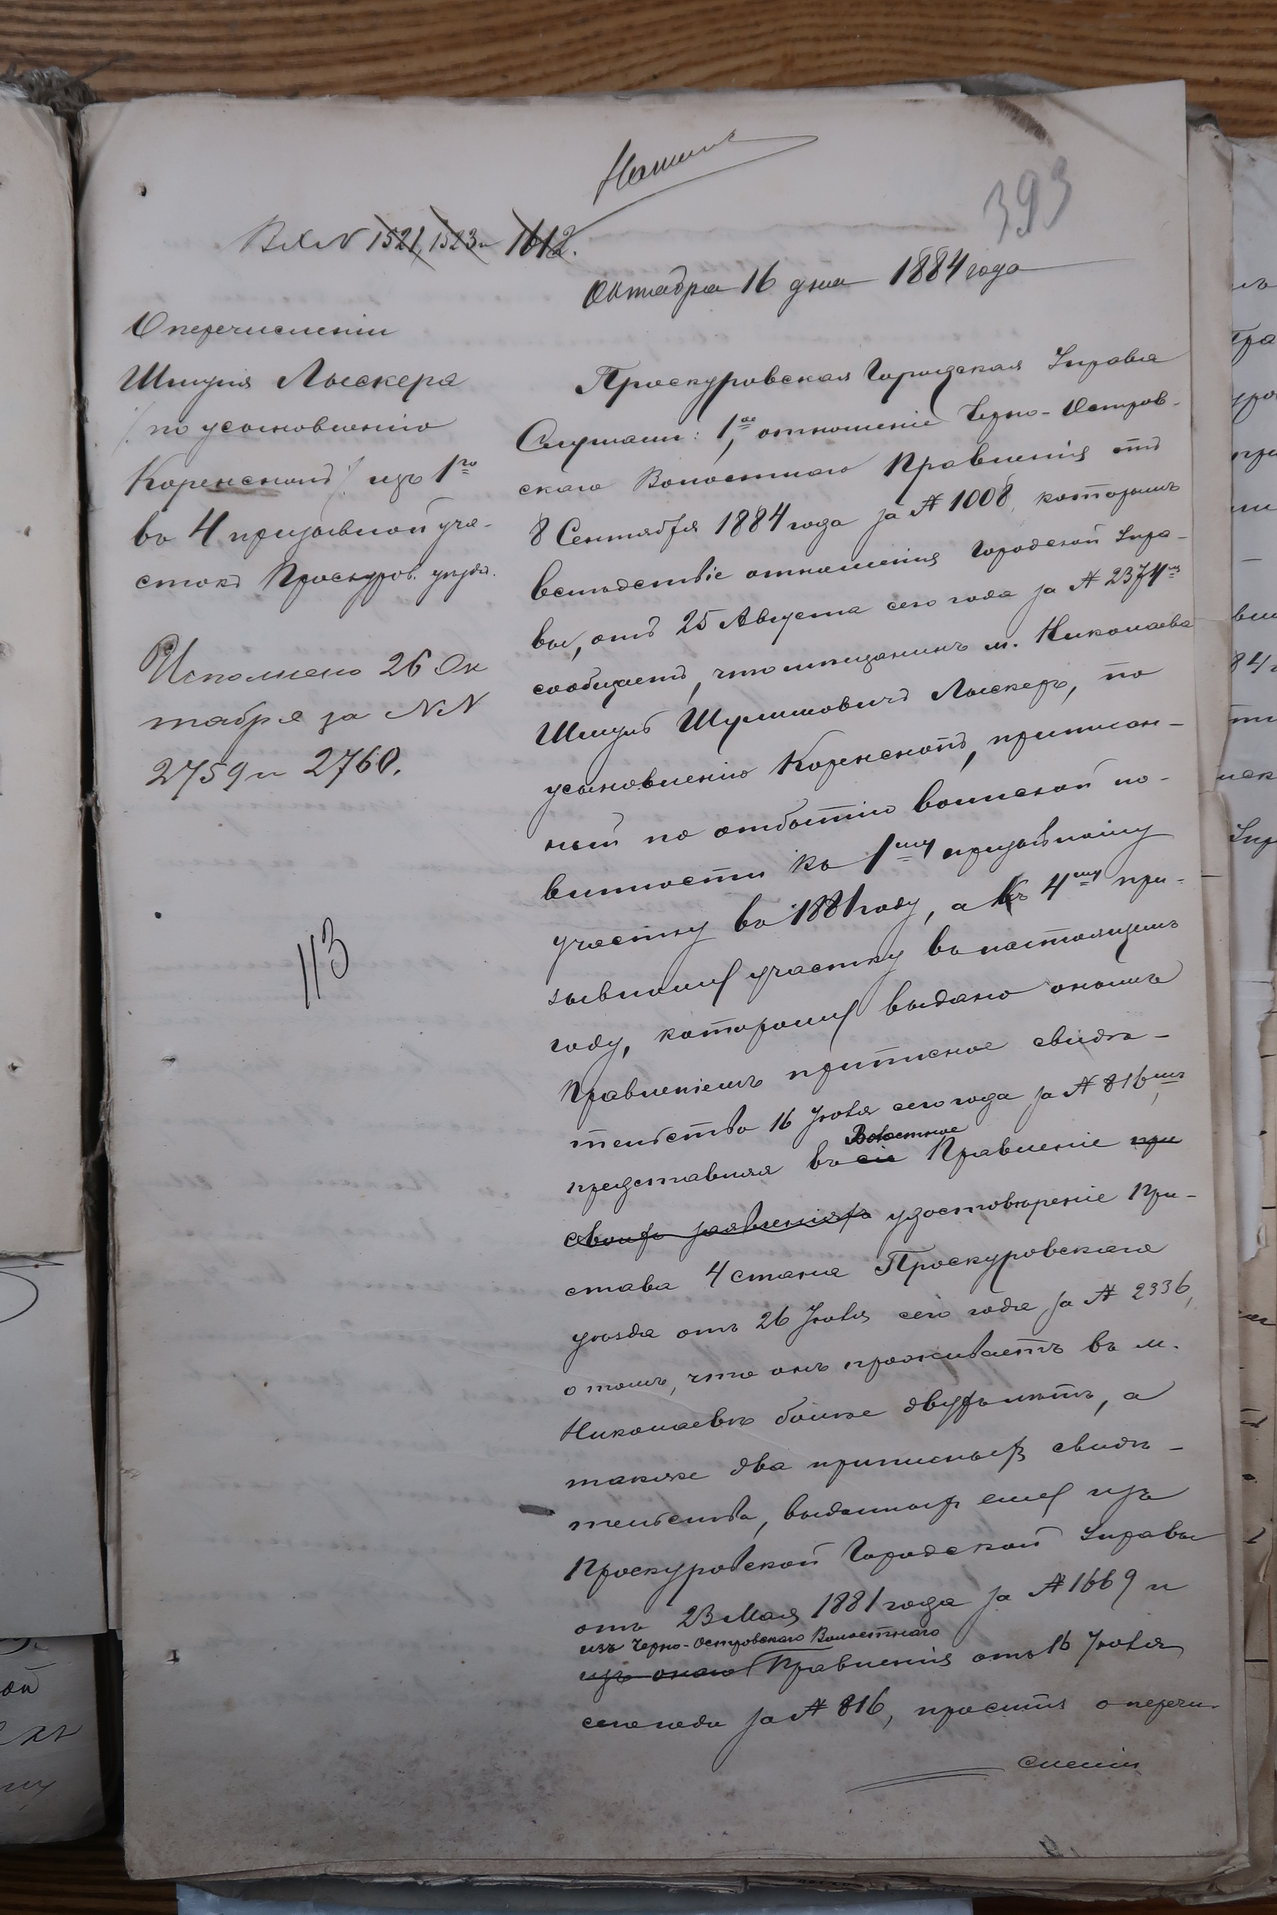 393
Вх № 1521, 1523 и 1612.
Октября 16 дня 1884 года
О перечисленіи
Шмуля Лыскера
/ по усыновленію
Коренскопъ / изъ 1го
во 4 призывной уча-
стокъ Проскуров. уѣзда.
Исполнено 26 Ок
тября за №№
2759 и 2760.
113
Проскуровская Городская Управа
Слушали: 1ое, отношеніе Черно-Остров-
скаго Волостнаго Правленія отъ
8 Сентября 1884 года за № 1008, которымъ
вслѣдствіе отношенія Городской Упра-
вы, отъ 25 Августа сего года за № 2374мъ
сообщаетъ, что мѣщанинъ м. Николаева
Шмуль Шулимовичъ Лыскеръ, по
усыновленію Коренскопъ, приписан-
ный по отбытію воинской по-
винности къ 1му призывному
участку въ 1881 году, а къ 4му при-
зывному участку въ настоящемъ
году, которому выдано онымъ
Правленіемъ приписное свидѣ-
тельство 16 Іюля сего года за № 816мъ,
Волостное
представляя въ сіе Правленіе при
своихъ заявленіяхъ удостовѣреніе При-
става 4 стана Проскуровскаго
уѣзда отъ 26 Іюля сего года за № 2336,
о томъ, что онъ проживаетъ въ м.
Николаевѣ болѣе двухъ лѣтъ, а
также два приписныхъ свидѣ-
тельства, выданныхъ ему изъ
Проскуровской Городской Управы
отъ 23 Мая 1881 года за № 1669 и
изъ Черно-Островскаго Волостнаго
изъ онаго Правленія отъ 16 Іюля
сего года за № 816, проситъ о перечи-
сленіи